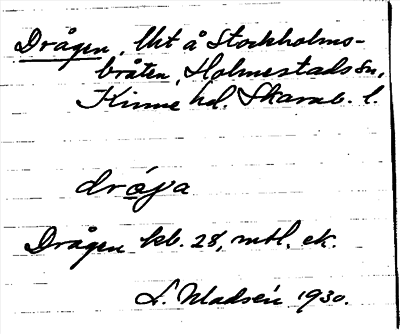 Drågen, lht å Stockholms-
bråten, Holmestads sn,
Kinne hd. Skarab. l.
dråga
Drågen kb. 28, mtl. ek.
L. Madsén 1930.